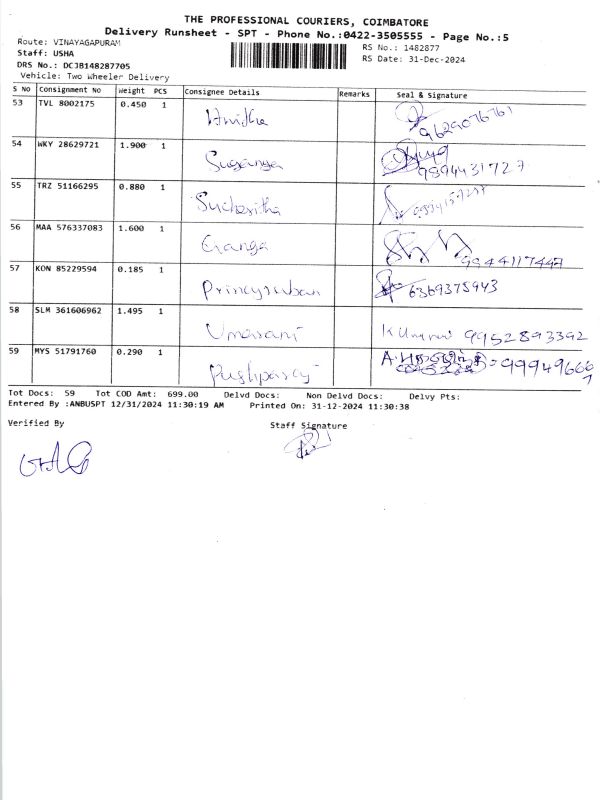 THE PROFESSIONAL COURIERS, COIMBATORE
Delivery Runsheet - SPT - Phone No.:0422-3505555 - Page No.:5
Route: VINAYAGAPURAM
Staff: USHA
DRS No.: DCJB148287705
Vehicle: Two Wheeler Delivery
RS No.: 1482877
RS Date: 31-Dec-2024
S No Consignment No Weight PCS Consignee Details Remarks Seal & Signature
53 TVL 8002175 0.450 1 9629076761
54 WKY 28629721 1.900 1 Suganya 9894431727
55 TRZ 51166295 0.880 1 Sucharitha
56 MAA 576337083 1.600 1 Ganga 9944117447
57 KON 85229594 0.185 1 Princysuban 6369375943
58 SLM 361606962 1.495 1 Umarani Kumar 9952893392
59 MYS 51791760 0.290 1 Pushparaj
Tot Docs: 59 Tot COD Amt: 699.00 Delvd Docs: Non Delvd Docs: Delvy Pts:
Entered By :ANBUSPT 12/31/2024 11:30:19 AM Printed On: 31-12-2024 11:30:38
Verified By Staff Signature